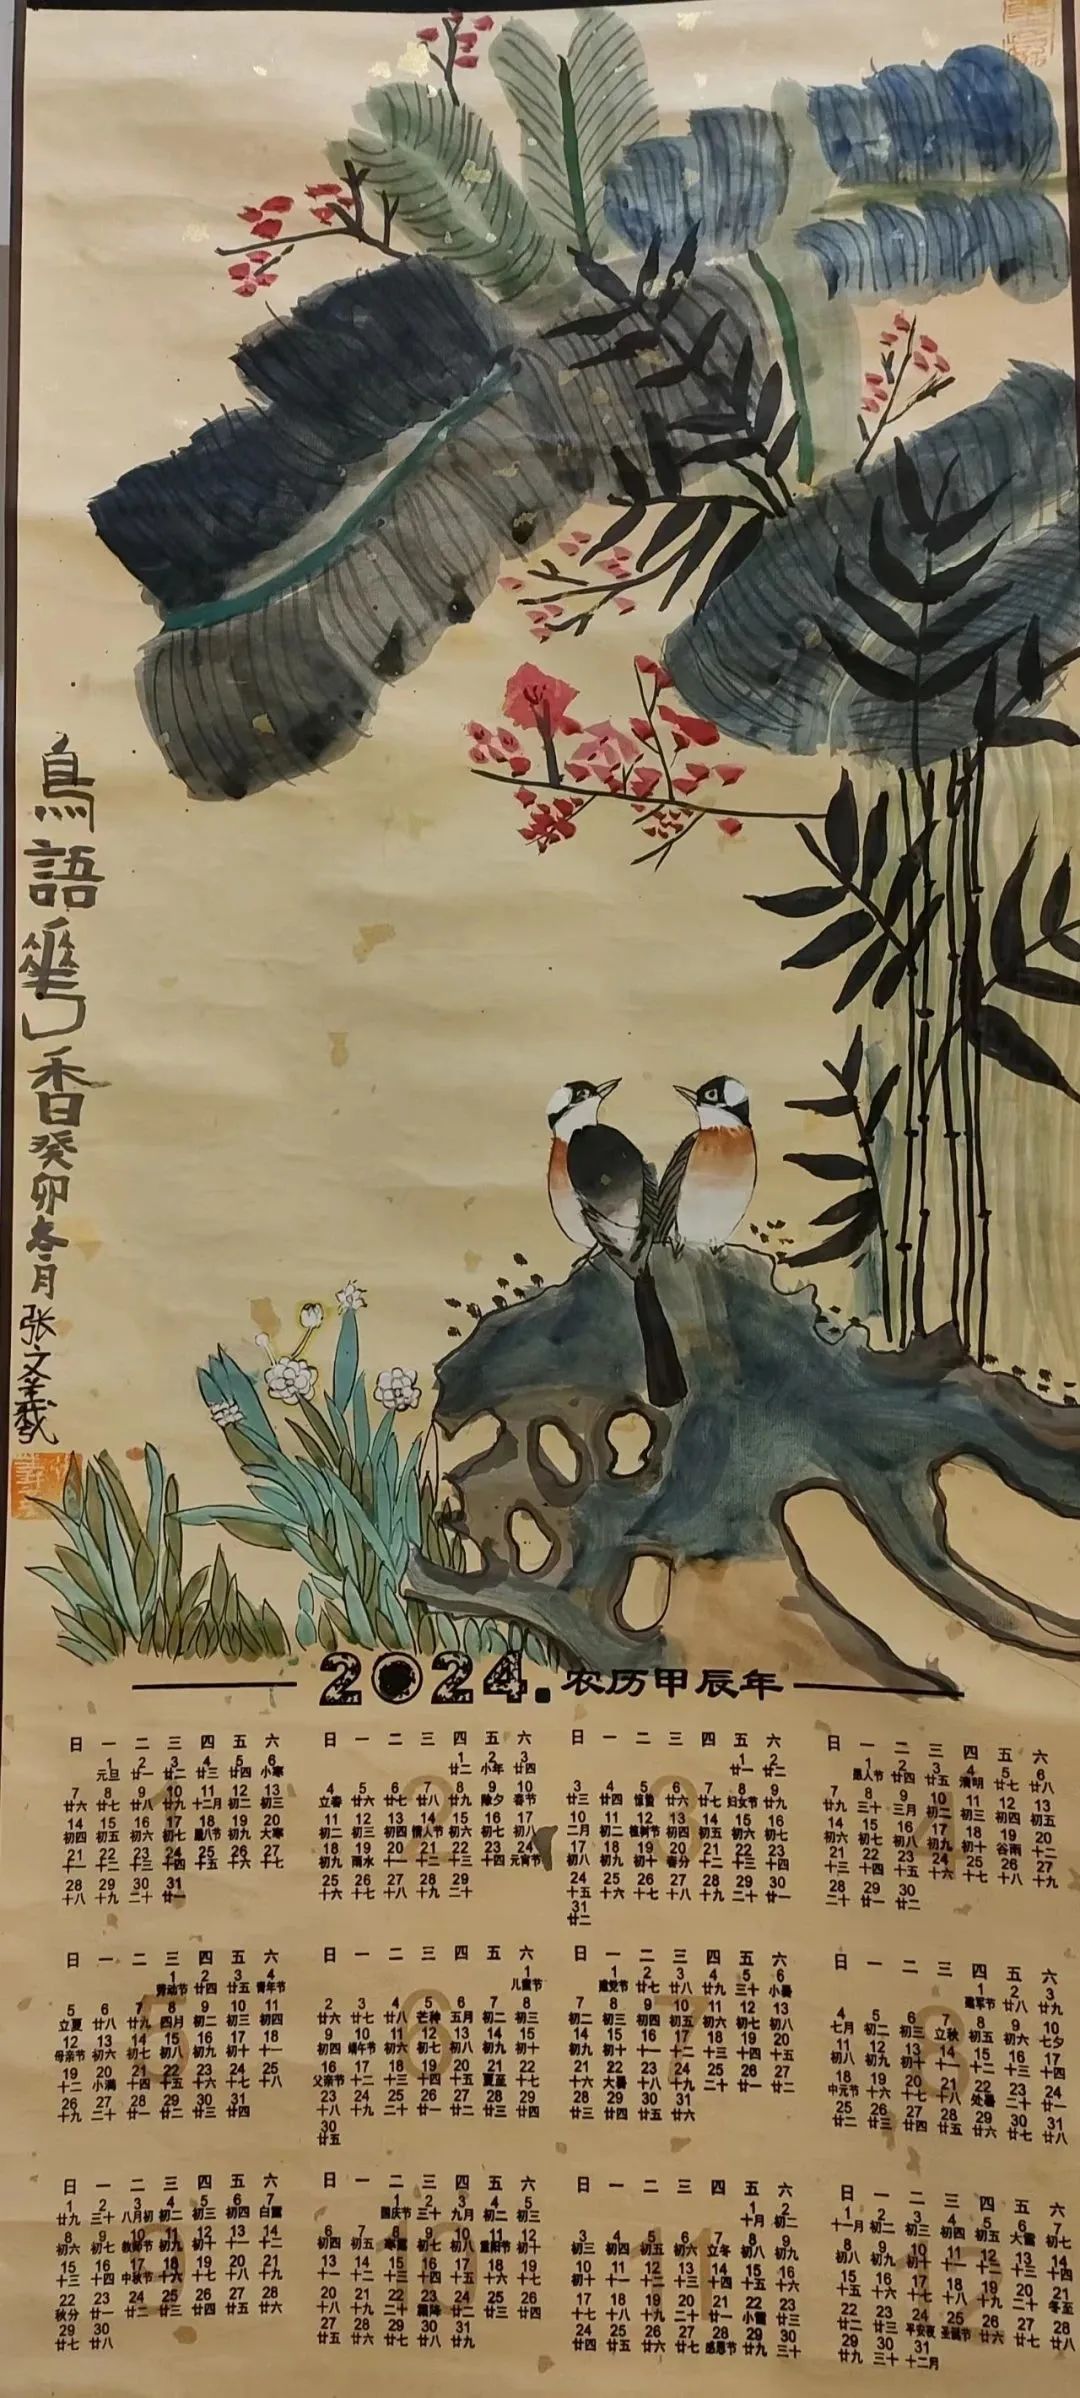 鳥語華香
癸卯冬月
张文羲
2024.农历甲辰年
1
日 一 二 三 四 五 六
1 2 3 4 5 6
元旦 廿一 廿二 廿三 廿四 小寒
7 8 9 10 11 12 13
廿六 廿七 廿八 廿九 十二月 初二 初三
14 15 16 17 18 19 20
初四 初五 初六 初七 腊八节 初九 大寒
21 22 23 24 25 26 27
十一 十二 十三 十四 十五 十六 十七
28 29 30 31
十八 十九 二十 廿一
2
日 一 二 三 四 五 六
1 2 3
廿二 小年 廿四
4 5 6 7 8 9 10
立春 廿六 廿七 廿八 廿九 除夕 春节
11 12 13 14 15 16 17
初二 初三 初四 情人节 初六 初七 初八
18 19 20 21 22 23 24
初九 雨水 十一 十二 十三 十四 元宵节
25 26 27 28 29
十六 十七 十八 十九 二十
3
日 一 二 三 四 五 六
1 2
廿一 廿二
3 4 5 6 7 8 9
廿三 廿四 惊蛰 廿六 廿七 妇女节 廿九
10 11 12 13 14 15 16
二月 初二 植树节 初四 初五 初六 初七
17 18 19 20 21 22 23
初八 初九 初十 春分 十二 十三 十四
24 25 26 27 28 29 30
十五 十六 十七 十八 十九 二十 廿一
31
廿二
4
日 一 二 三 四 五 六
1 2 3 4 5 6
愚人节 廿四 廿五 清明 廿七 廿八
7 8 9 10 11 12 13
廿九 三十 三月 初二 初三 初四 初五
14 15 16 17 18 19 20
初六 初七 初八 初九 初十 谷雨 十二
21 22 23 24 25 26 27
十三 十四 十五 十六 十七 十八 十九
28 29 30
二十 廿一 廿二
5
日 一 二 三 四 五 六
1 2 3 4
劳动节 廿四 廿五 青年节
5 6 7 8 9 10 11
立夏 廿八 廿九 四月 初二 初三 初四
12 13 14 15 16 17 18
母亲节 初六 初七 初八 初九 初十 十一
19 20 21 22 23 24 25
十二 小满 十四 十五 十六 十七 十八
26 27 28 29 30 31
十九 二十 廿一 廿二 廿三 廿四
6
日 一 二 三 四 五 六
1
儿童节
2 3 4 5 6 7 8
廿六 廿七 廿八 芒种 五月 初二 初三
9 10 11 12 13 14 15
初四 端午节 初六 初七 初八 初九 初十
16 17 18 19 20 21 22
父亲节 十二 十三 十四 十五 夏至 十七
23 24 25 26 27 28 29
十八 十九 二十 廿一 廿二 廿三 廿四
30
廿五
7
日 一 二 三 四 五 六
1 2 3 4 5 6
建党节 廿七 廿八 廿九 三十 小暑
7 8 9 10 11 12 13
初二 初三 初四 初五 初六 初七 初八
14 15 16 17 18 19 20
初九 初十 十一 十二 十三 十四 十五
21 22 23 24 25 26 27
十六 大暑 十八 十九 二十 廿一 廿二
28 29 30 31
廿三 廿四 廿五 廿六
8
日 一 二 三 四 五 六
1 2 3
建军节 廿八 廿九
4 5 6 7 8 9 10
七月 初二 初三 立秋 初五 初六 七夕
11 12 13 14 15 16 17
初八 初九 初十 十一 十二 十三 十四
18 19 20 21 22 23 24
中元节 十六 十七 十八 处暑 二十 廿一
25 26 27 28 29 30 31
廿二 廿三 廿四 廿五 廿六 廿七 廿八
9
日 一 二 三 四 五 六
1 2 3 4 5 6 7
廿九 三十 八月初 初二 初三 初四 白露
8 9 10 11 12 13 14
初六 初七 教师节 初九 初十 十一 十二
15 16 17 18 19 20 21
十三 十四 中秋节 十六 十七 十八 十九
22 23 24 25 26 27 28
秋分 廿一 廿二 廿三 廿四 廿五 廿六
29 30
廿七 廿八
10
日 一 二 三 四 五 六
1 2 3 4 5
国庆节 三十 九月 初二 初三
6 7 8 9 10 11 12
初四 初五 寒露 初七 初八 重阳节 初十
13 14 15 16 17 18 19
十一 十二 十三 十四 十五 十六 十七
20 21 22 23 24 25 26
十八 十九 二十 霜降 廿二 廿三 廿四
27 28 29 30 31
廿五 廿六 廿七 廿八 廿九
11
日 一 二 三 四 五 六
1 2
十月 初二
3 4 5 6 7 8 9
初三 初四 初五 初六 立冬 初八 初九
10 11 12 13 14 15 16
初十 十一 十二 十三 十四 十五 十六
17 18 19 20 21 22 23
十七 十八 十九 二十 廿一 小雪 廿三
24 25 26 27 28 29 30
廿四 廿五 廿六 廿七 感恩节 廿九 三十
12
日 一 二 三 四 五 六
1 2 3 4 5 6 7
十一月 初二 初三 初四 初五 大雪 初七
8 9 10 11 12 13 14
初八 初九 初十 十一 十二 十三 十四
15 16 17 18 19 20 21
十五 十六 十七 十八 十九 二十 冬至
22 23 24 25 26 27 28
廿二 廿三 平安夜 圣诞节 廿六 廿七 廿八
29 30 31
廿九 三十 十二月